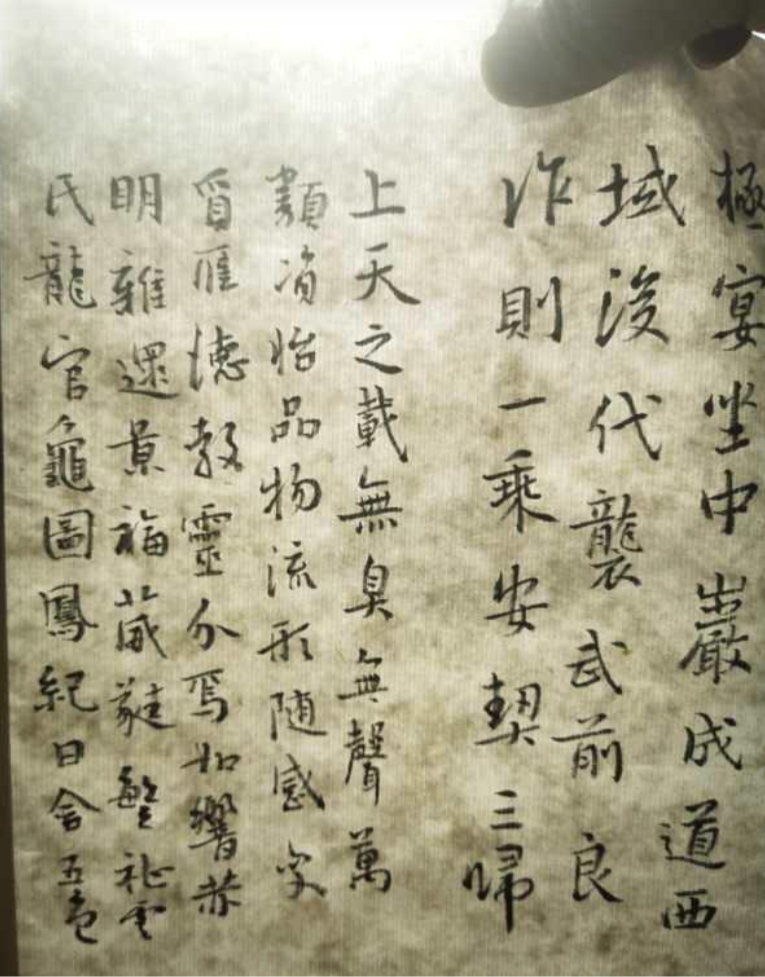 極宴坐中巖成道西
域後代襲武前良
作則一乘安契三歸
上天之載無臭無聲萬
類資始品物流形随感变
質應德効靈介焉如響赫
明雜遝景福葳蕤繁祉雲
氏龍官龜圖鳳紀日含五色